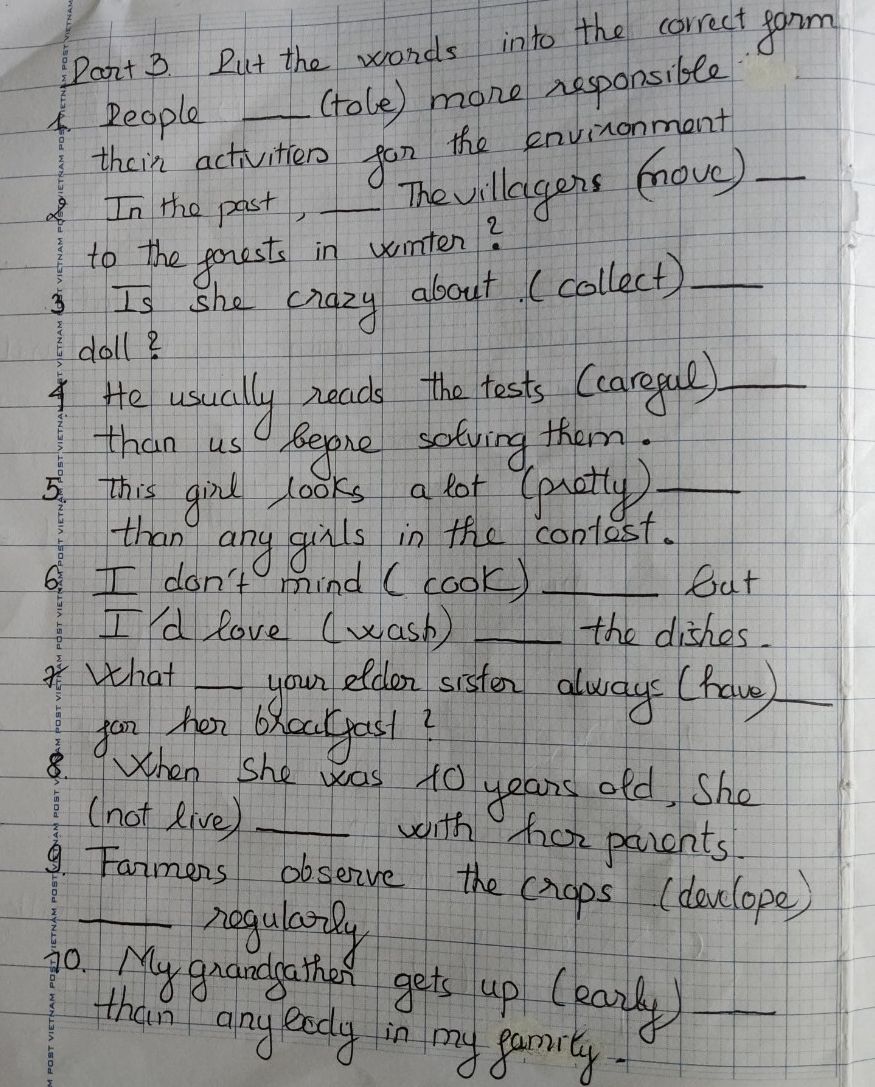 Part 3. Put the words into the correct form
1. People ___ (tobe) more responsible
their activities for the environment
2. In the past, ___ The villagers (move) ___
to the forests in winter?
3 Is she crazy about (collect) ___
doll?
4 He usually reads the tests (careful) ___
than us before solving them.
5. This girl looks a lot (pretty) ___
than any girls in the contest.
6. I don't mind (cook) ___ but
I'd love (wash) ___ the dishes.
7. What ___ your elder sister always (have) ___
for her breakfast?
8. When she was 10 years old, she
(not live) ___ with her parents.
9. Farmers observe the crops (develope)
___ regularly
10. My grandfather gets up (early) ___
than anybody in my family.
VIETNAM POST VIETNAM POST VIETNAM POST VIETNAM POST VIETNAM POST VIETNAM POST